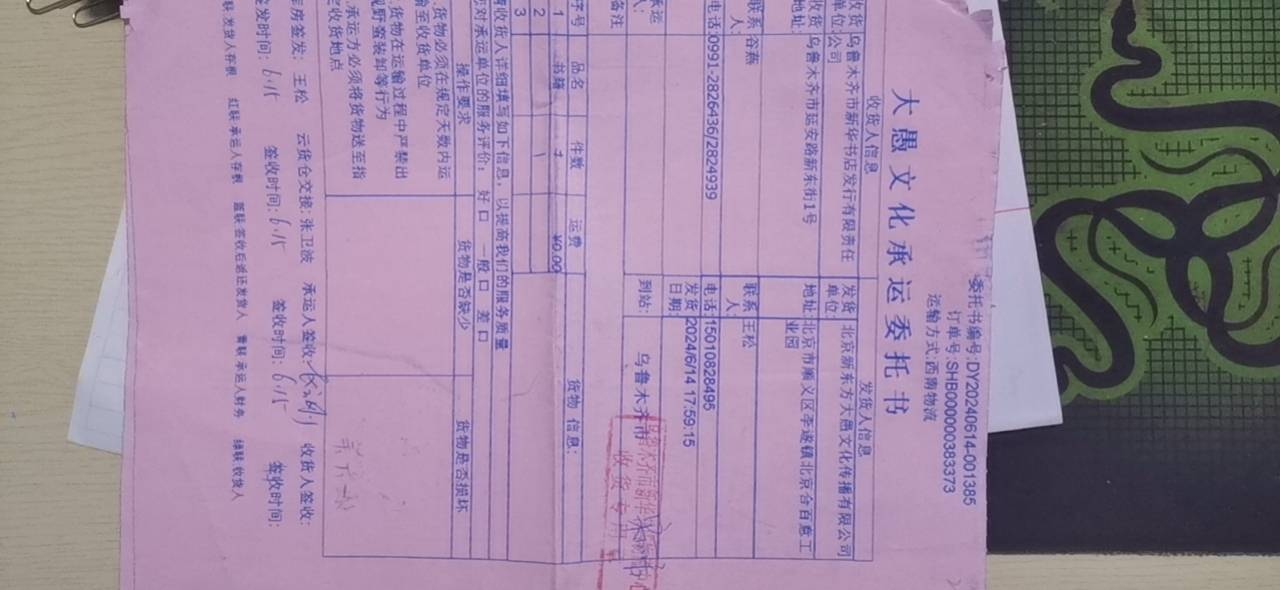 大愚文化承运委托书
委托书编号:DY20240614-001385
订单号:SHB00000383373
运输方式:西南物流
收货人信息 发货人信息
收货单位: 乌鲁木齐市新华书店发行有限责任公司 发货单位: 北京新东方大愚文化传播有限公司
收货地址: 乌鲁木齐市延安路新东街1号 地址: 北京市顺义区李遂镇北京合百意工业园
联系人: 谷燕 联系人: 王松
电话: 0991-2826436/2824939 电话: 15010828495
发货日期: 2024/6/14 17:59:15
承运 到站: 乌鲁木齐市
备注
收货专用
序号 品名 件数 运费 货物 信息:
1 书籍 ¥0.00
2
3
收货人详细填写如下信息，以提高我们的服务质量
对承运单位的服务评价: 好 口 一般 口 差 口
操作要求 货物是否缺少 货物是否损坏
货物必须在规定天数内运
至收货单位
货物在运输过程中严禁出
野蛮装卸等行为
承运方必须将货物送至指
收货地点
房签发: 王松 云货仓交接: 张卫波 承运人签收: 收货人签收:
发时间: 6.15 签收时间: 6.15 签收时间: 6.15 签收时间:
联:发货人存根 红联:承运人存根 蓝联:签收后返还发货人 青联:承运人财务 绿联:收货人